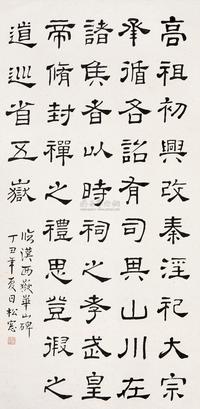 高祖初興改秦淫祀大宗
承循各詔有司其山川在
諸矦者以時祠之孝武皇
帝脩封禪之禮思登徦之
道巡省五嶽
臨漢西嶽華山碑
丁丑年夏日松窗